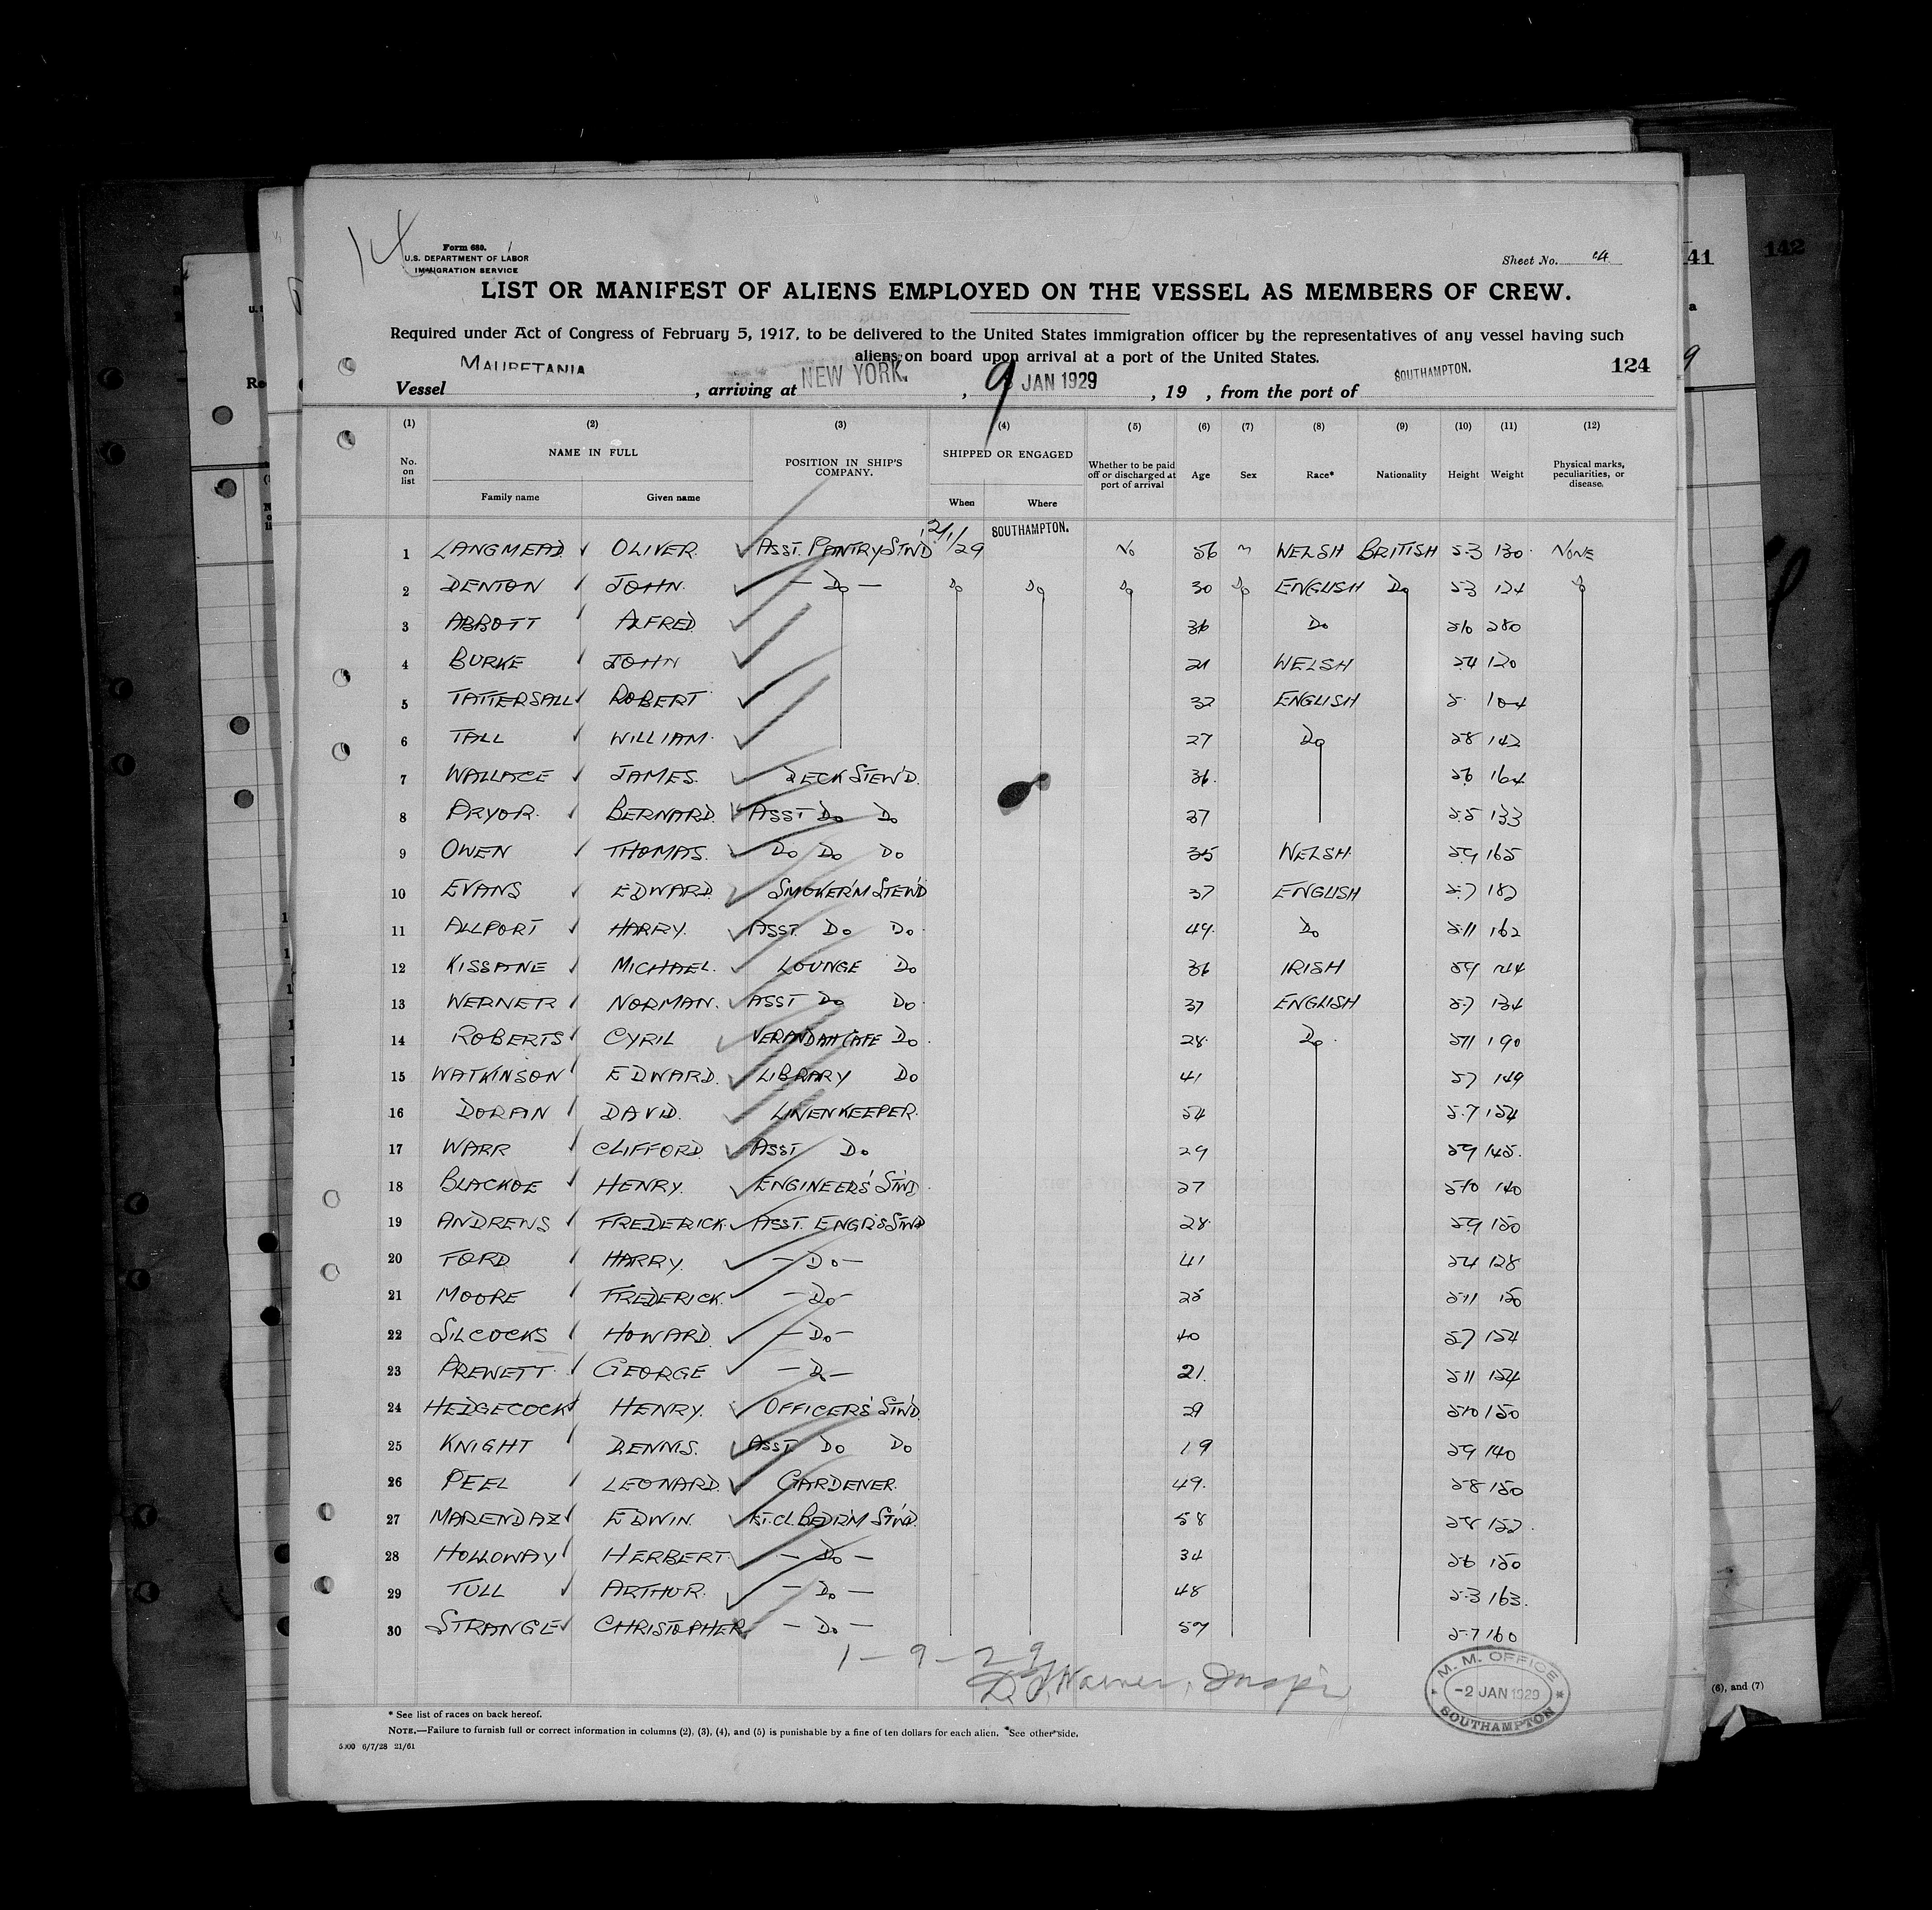 Form 680.
U.S. DEPARTMENT OF LABOR
IMMIGRATION SERVICE
Sheet No. 14
LIST OR MANIFEST OF ALIENS EMPLOYED ON THE VESSEL AS MEMBERS OF CREW.
Required under Act of Congress of February 5, 1917, to be delivered to the United States immigration officer by the representatives of any vessel having such
aliens on board upon arrival at a port of the United States.
124
Vessel MAURETANIA, arriving at NEW YORK., 9 JAN 1929, 19 , from the port of SOUTHAMPTON.
(1) (2) (3) (4) (5) (6) (7) (8) (9) (10) (11) (12)
No. on list NAME IN FULL POSITION IN SHIP'S COMPANY. SHIPPED OR ENGAGED Whether to be paid off or discharged at port of arrival Age Sex Race* Nationality Height Weight Physical marks, peculiarities, or disease.
Family name Given name When Where
1 LANGMEAD OLIVER. ASST. PANTRY STWD 2/1/29 SOUTHAMPTON. No 56 M WELSH BRITISH 5.3 130 NONE
2 DENTON JOHN. — Do — Do Do Do 30 Do ENGLISH Do 5.3 124 Do
3 ABBOTT ALFRED. 36 Do 5.10 280
4 BURKE JOHN 21 WELSH 5.4 120
5 TATTERSALL ROBERT 32 ENGLISH 5. 104
6 TALL WILLIAM. 27 Do 5.8 142
7 WALLACE JAMES. DECK STEW'D. 36. 5.6 164
8 PRYOR. BERNARD. ASST Do Do 37 5.5 133
9 OWEN THOMAS. Do Do Do 35 WELSH. 5.9 165
10 EVANS EDWARD. SMOKER'M STEW'D 37 ENGLISH 5.7 182
11 ALLPORT HARRY. ASST. Do Do. 49. Do 5.11 162
12 KISSANE MICHAEL. LOUNGE Do 36 IRISH 5.9 144
13 WERNER NORMAN. ASST Do Do. 37 ENGLISH 5.7 134
14 ROBERTS CYRIL VERANDAH CAFE Do. 28. Do. 5.11 190
15 WATKINSON EDWARD. LIBRARY Do 41 5.7 149
16 DORAN DAVID. LINENKEEPER. 54 5.7 154
17 WARR CLIFFORD. ASST Do 29 5.9 145.
18 BLACKOE HENRY. ENGINEERS' STWD. 27 5.10 140
19 ANDREWS FREDERICK. ASST. ENGR'S STWD 28. 5.9 150
20 FORD HARRY. — Do — 41 5.4 128
21 MOORE FREDERICK. — Do — 25 5.11 150
22 SILCOCKS HOWARD. — Do — 40 5.7 154
23 PREWETT. GEORGE — Do — 21. 5.11 154
24 HEDGECOCK HENRY. OFFICERS' STW'D. 29 5.10 150
25 KNIGHT DENNIS. ASST Do Do 19 5.9 140
26 PEEL LEONARD. GARDENER. 49. 5.8 150
27 MARENDAZ EDWIN. 1ST. CL. BEDR'M STW'D. 58 5.8 152.
28 HOLLOWAY HERBERT. — Do — 34 5.6 150
29 TULL ARTHUR. — Do — 48 5.3 163.
30 STRANGE CHRISTOPHER — Do — 57 5.7 160
1 – 9 – 29
M. M. OFFICE
-2 JAN 1929
SOUTHAMPTON
* See list of races on back hereof.
NOTE.—Failure to furnish full or correct information in columns (2), (3), (4), and (5) is punishable by a fine of ten dollars for each alien. *See other side.
5000 6/7/28 21/61
41
142
(6), and (7)